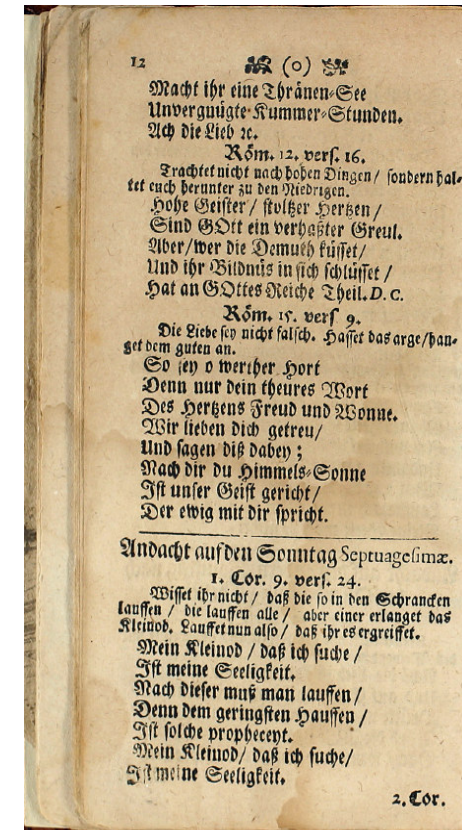 12 (o)
Macht ihr eine Thränen-See
Unvergnügte Kummer-Stunden.
Ach die Lieb ꝛc.
Röm. 12. vers. 16.
Trachtet nicht nach hohen Dingen / sondern hal-
tet euch herunter zu den Niedrigen.
Hohe Geister / stoltzer Hertzen /
Sind GOtt ein verhaßter Greul.
Aber / wer die Demuth küsset /
Und ihr Bildnüs in sich schlüsset /
Hat an GOttes Reiche Theil. D. C.
Röm. 15. vers 9.
Die Liebe sey nicht falsch. Hasset das arge / han-
get dem guten an.
So sey o werther Hort
Denn nur dein theures Wort
Des Hertzens Freud und Wonne.
Wir lieben dich getreu /
Und sagen diß dabey ;
Nach dir du Himmels-Sonne
Ist unser Geist gericht /
Der ewig mit dir spricht.
Andacht auf den Sonntag Septuagesimæ.
1. Cor. 9. vers. 24.
Wisset ihr nicht / daß die so in den Schrancken
lauffen / die lauffen alle / aber einer erlanget das
Kleinod. Lauffet nun also / daß ihr es ergreiffet.
Mein Kleinod / daß ich suche /
Ist meine Seeligkeit.
Nach dieser muß man lauffen /
Denn dem geringsten Hauffen /
Ist solche propheceyt.
Mein Kleinod / daß ich suche /
Ist meine Seeligkeit.
2. Cor.